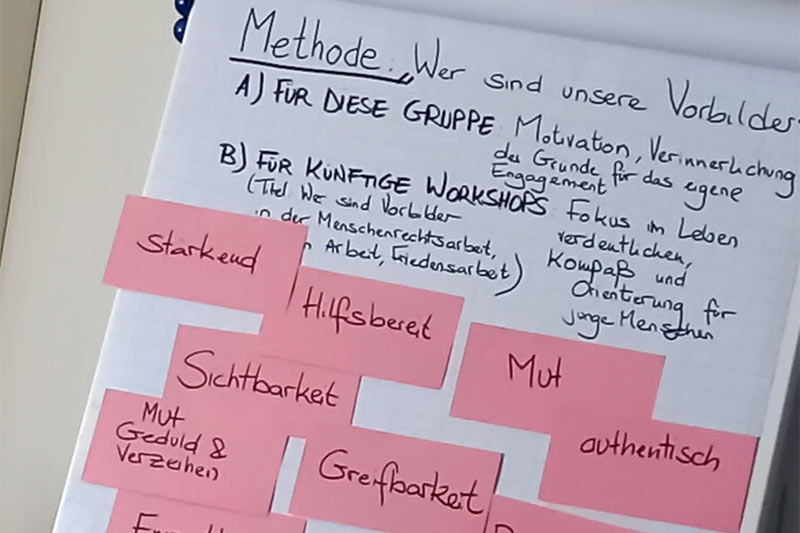 Methode: Wer sind unsere Vorbilder
A) FÜR DIESE GRUPPE Motivation, Verinnerlichung
der Gründe für das eigene
Engagement
B) FÜR KÜNFTIGE WORKSHOPS Fokus im Leben
verdeutlichen,
Kompaß und
Orientierung für
junge Menschen
(Titel Wer sind Vorbilder
in der Menschenrechtsarbeit,
Arbeit, Friedensarbeit)
Stärkend
Hilfsbereit
Mut
Sichtbarkeit
authentisch
Mut
Geduld &
Verzeihen
Greifbarkeit